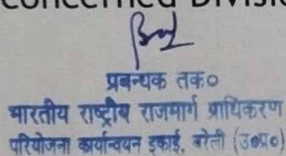 concerned Divisi
प्रबन्धक तक०
भारतीय राष्ट्रीय राजमार्ग प्राधिकरण
परियोजना कार्यान्वयन इकाई, बरेली (उ०प्र०)